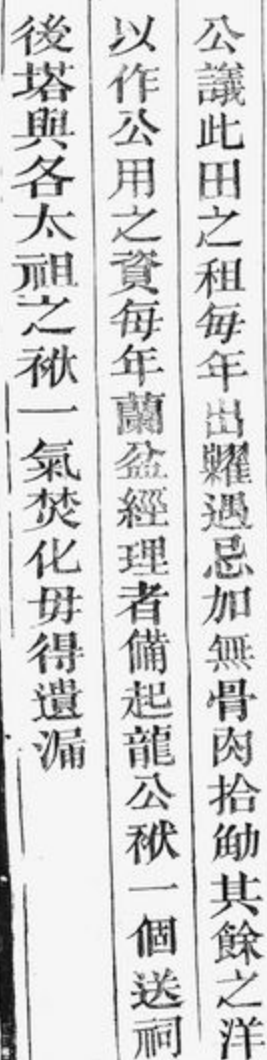 公議此田之租每年出糶遇忌加無骨肉拾觔其餘之洋
以作公用之資每年蘭盆經理者備起龍公袱一個送祠
後塔與各太祖之袱一氣焚化毋得遺漏